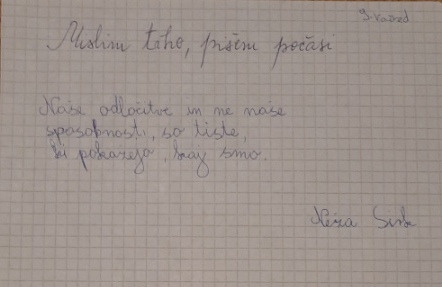 9. razred
Mislim tiho, pišem počasi
Naše odločitve in ne naše
sposobnosti, so tiste,
ki pokažejo, kaj smo.
Neža